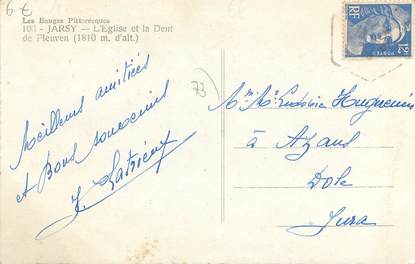 6 €
Les Bauges Pittoresques
103 - JARSY — L'Eglise et la Dent
de Pleuven (1810 m. d'alt.)
RF
12F
POSTES
Meilleurs amitiés
et Bons souvenirs
73
Mr Mme Ludovic Huguenin
à Azans
Dole
Jura